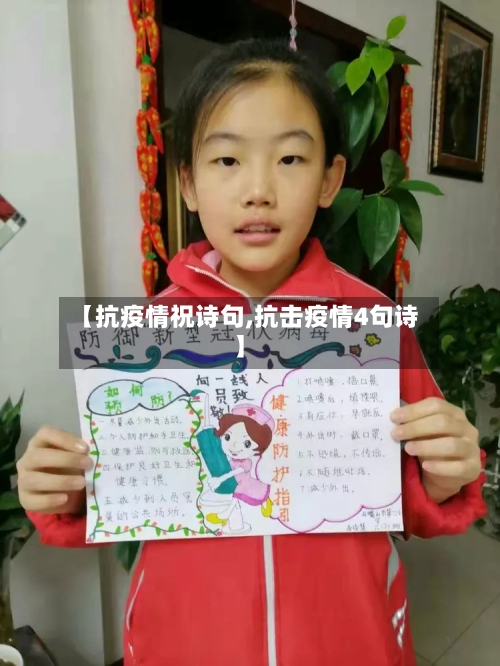 【抗疫情祝诗句,抗击疫情4句诗
】
防御新型冠状病毒
如何
预防?
1.尽量减少外出活动。
2.个人防护和手卫生。
3.健康监测
四.保护良好卫生和
健康习惯。
五.减少到人员密
集的公共场所。
向一线人
员致
敬!
健康防护指引
1.打喷嚏,捂口鼻。
2.喷嚏后,慎揉眼。
3.有症状,早就医。
4.外出时,戴口罩。
5.不恐慌,不传谣。
7.减少外出。